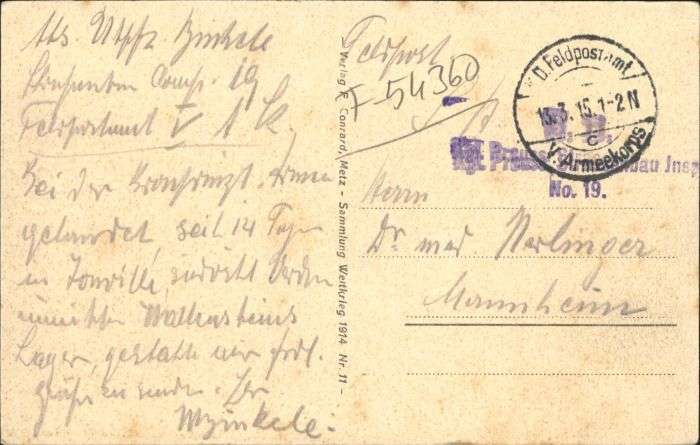 Abs. Utffz. Zinkele
Comp. 19
Feldpostamt V A K.
Bei der
gelandet seit 14 Tagen
in Jonville, südöstl. Verdun
Wallensteins
Lager, gestatte mir frdl.
Grüße zu senden. Ihr
WZinkele.
Verlag R. Conrard, Metz - Sammlung Weltkrieg 1914 Nr. 11 -
Feldpost
F-54360
K.D. Feldpostamt
13.3.15. 1-2 N
c
V. Armeekorps
S. B.
Kgl. Preuss. Insp
No. 19.
Herrn
Dr med Nerlinger
Mannheim